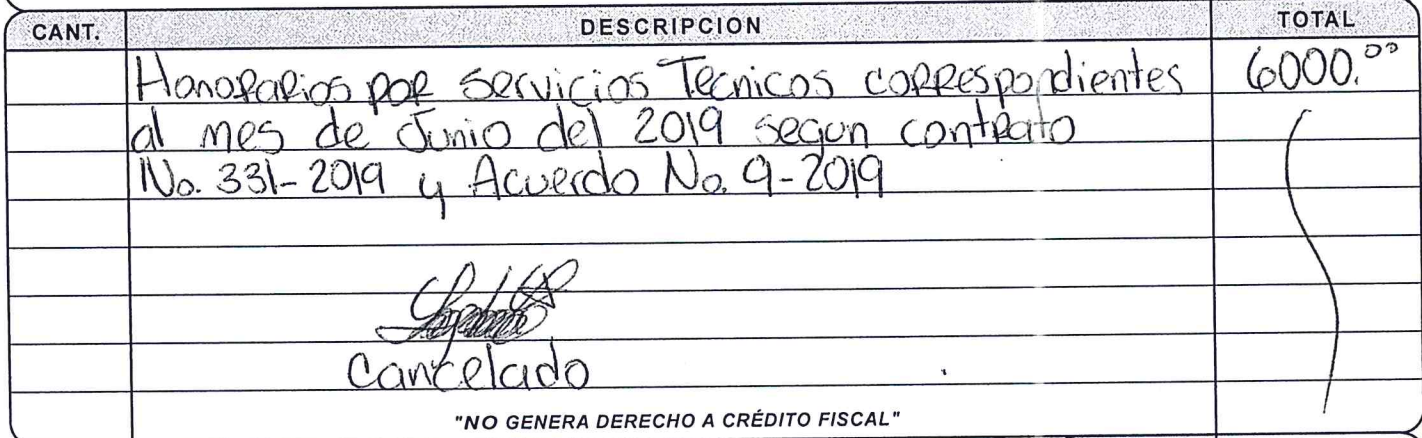 CANT. DESCRIPCION TOTAL
Honorarios por servicios Tecnicos correspondientes 6000.00
al mes de Junio del 2019 segun contrato
No. 331-2019 y Acuerdo No. 9-2019
Cancelado
"NO GENERA DERECHO A CRÉDITO FISCAL"